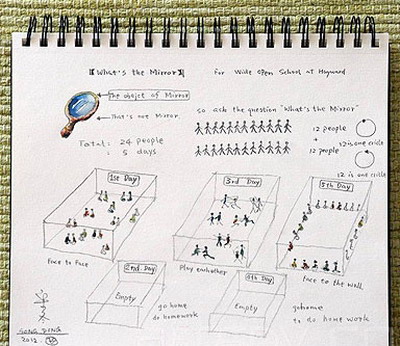 【What's the Mirror】 for Wide Open School at Hayward
The object of Mirror
That's our Mirror
so ask the question "What's the Mirror"
Total: 24 people
: 5 days
12 people
+
12 is one circle
12 people
12 is one circle
1st Day
3rd Day
5th Day
Face to Face
Play eachother
Face to the wall
2nd Day
4th Day
Empty
Empty
go home
do homework
go home
to do home work
SONG DONG
2012